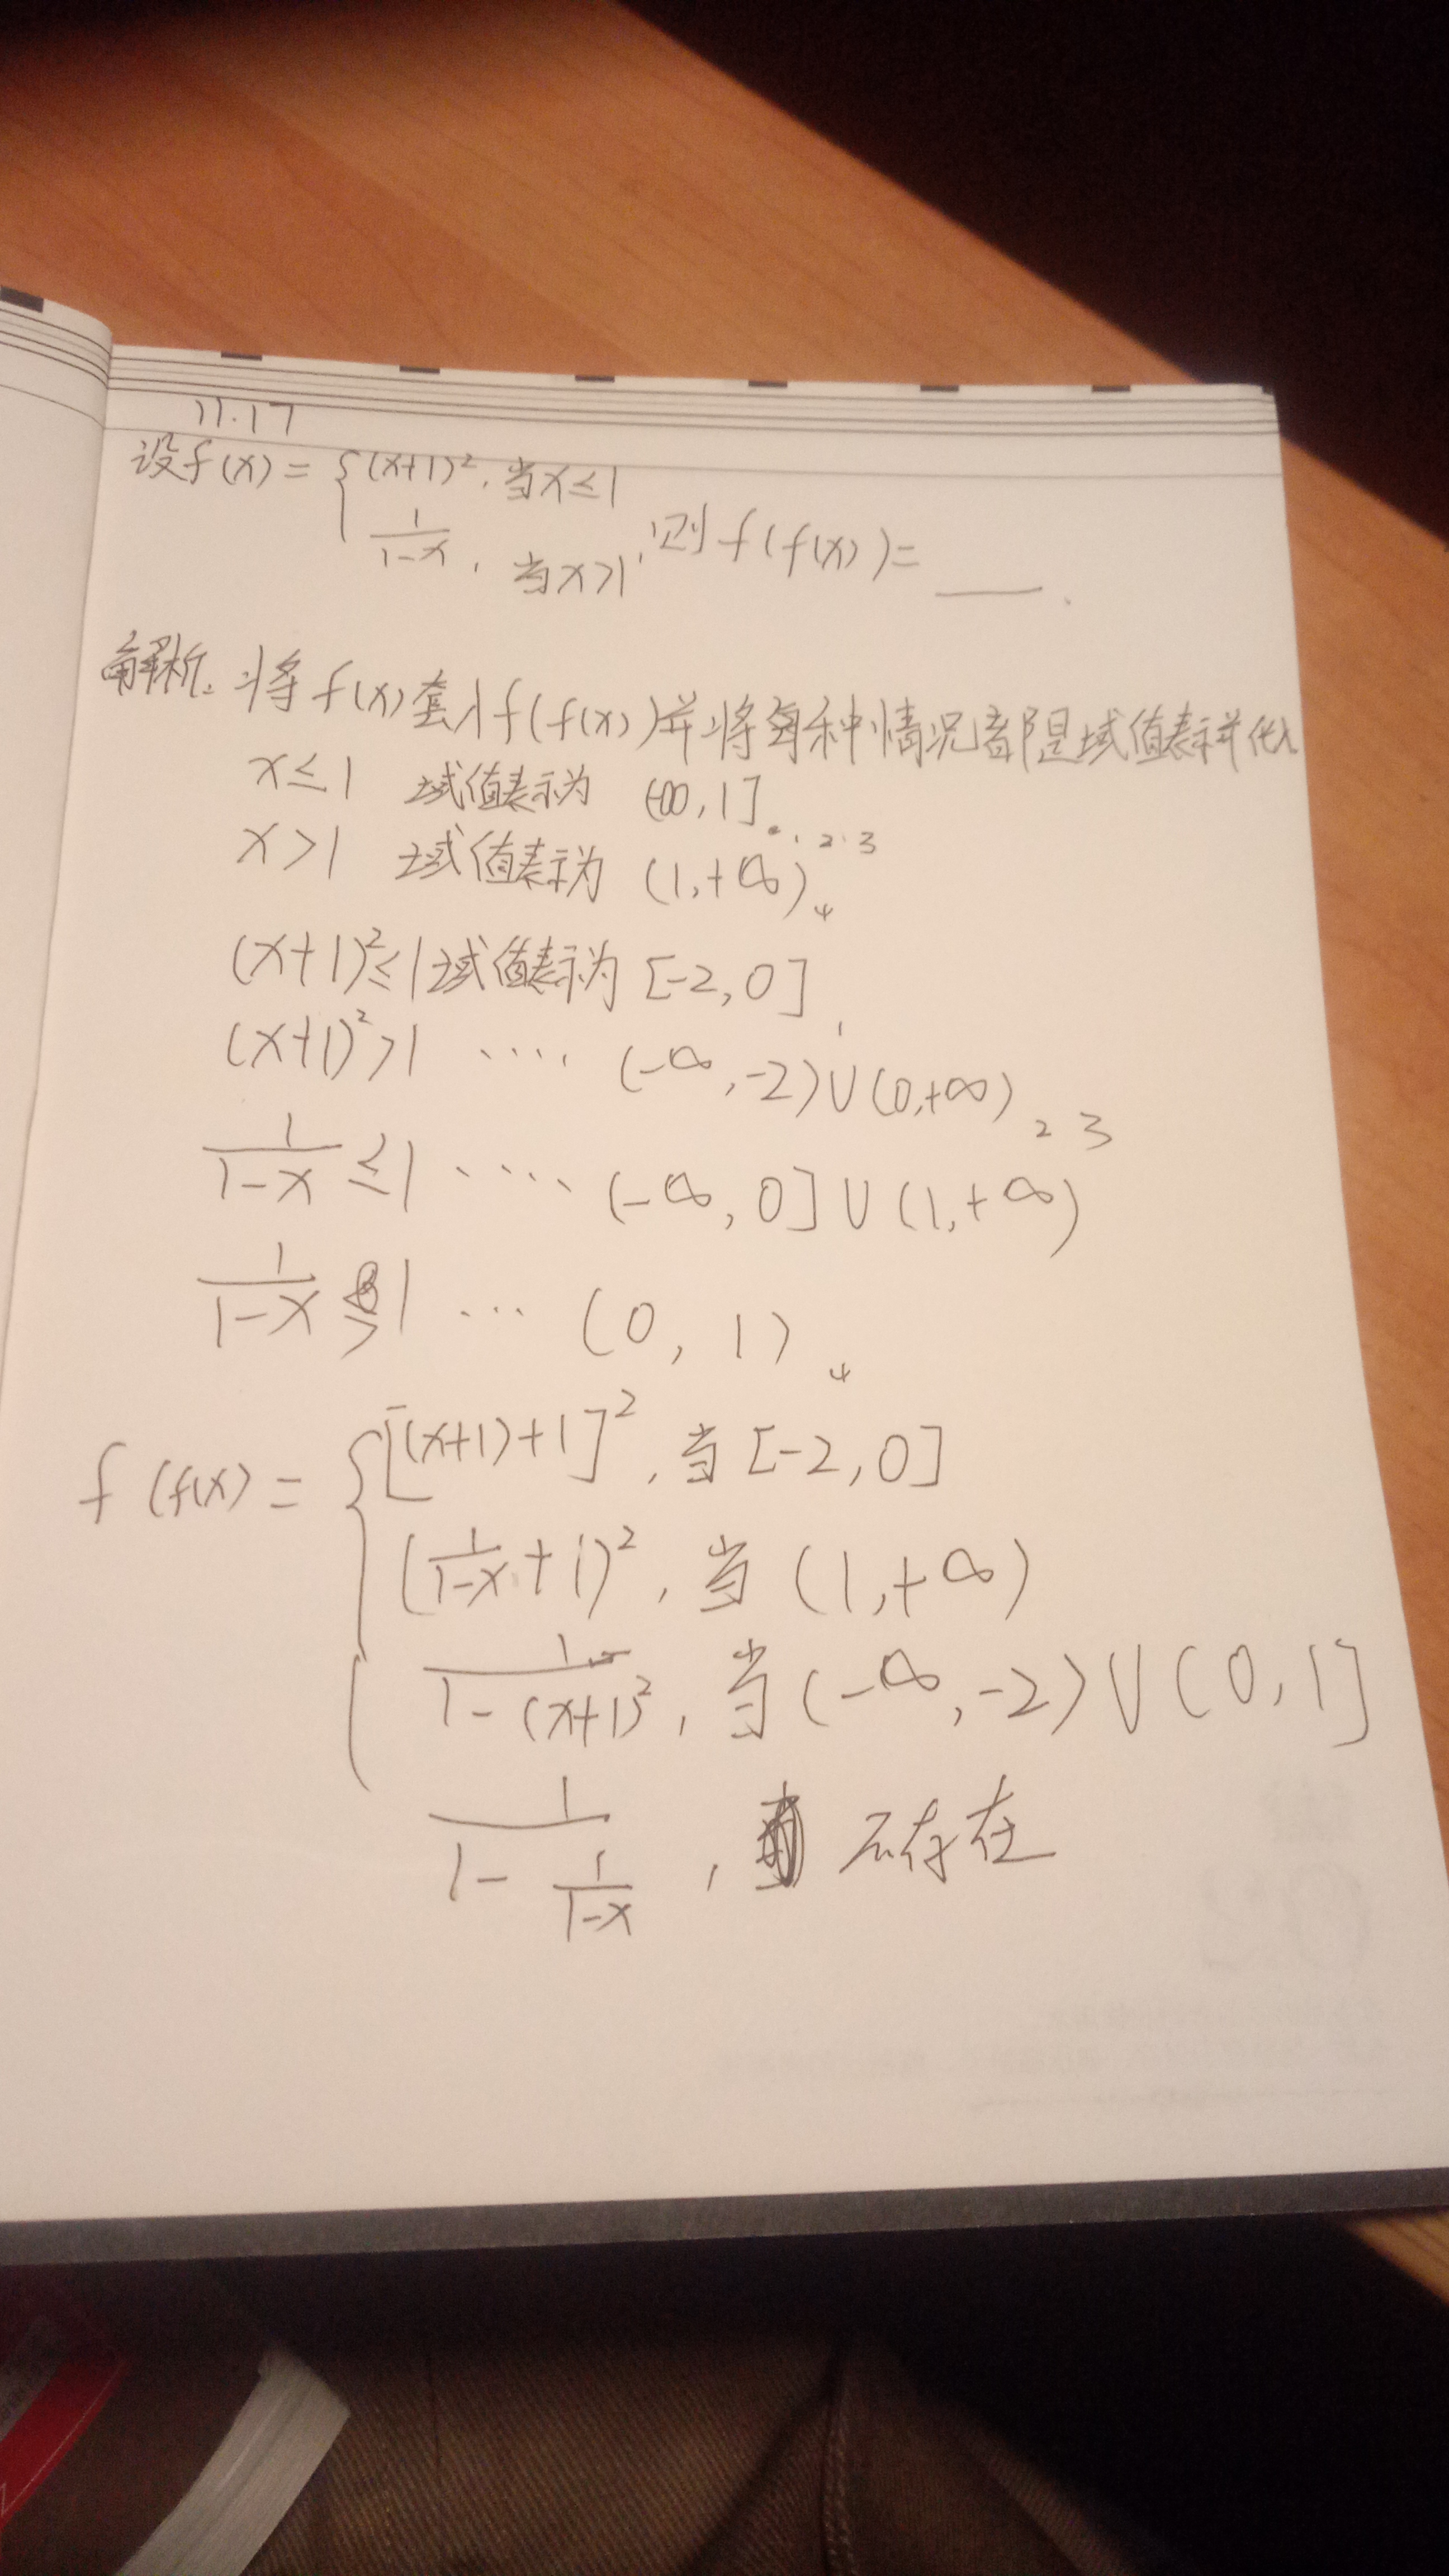 11.17
设f(x)= { (x+1)², 当x≤1
1/(1-x), 当x>1, 则f(f(x))= ___ .
解析: 将f(x)套入f(f(x))并将每种情况都是域值表示并化
x≤1 域值表示为 (-∞,1] 1 2 3
x>1 域值表示为 (1,+∞) 4
(x+1)²≤1 域值表示为 [-2,0] 1
(x+1)²>1 .... (-∞,-2)∪(0,+∞) 2 3
1/(1-x) ≤1 .... (-∞,0]∪(1,+∞)
1/(1-x) >1 ... (0,1) 4
f(f(x)= { [(x+1)+1]², 当[-2,0]
(1/(1-x)+1)², 当(1,+∞)
1/(1-(x+1)²), 当(-∞,-2)∪(0,1]
1/(1-1/(1-x)), 不存在